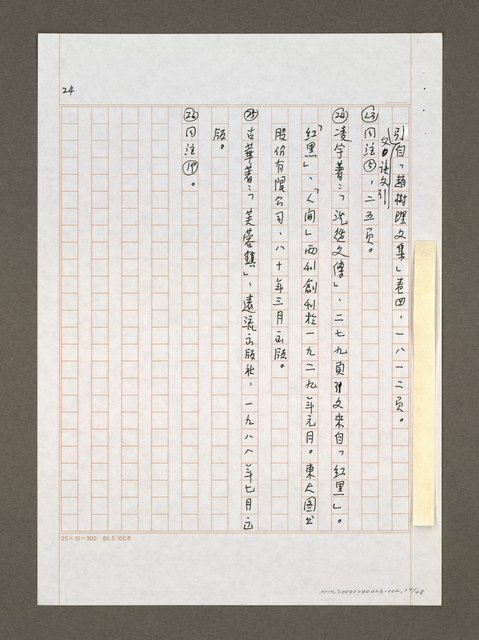 24
引自「趙樹理文集」卷四，一八一二頁。
㉓同注⑤，二五頁。
㉔凌宇著：「沈從文傳」、二七九頁引文來自「紅黑」。
「紅黑」、「人间」兩刊創刊於一九二九年元月。東大图书
股份有限公司、八十年三月出版。
㉕古華著：「芙蓉鎮」、遠流出版社，一九八八年七月出
版。
㉖同注⑲。
25×10=300 86.5.100本